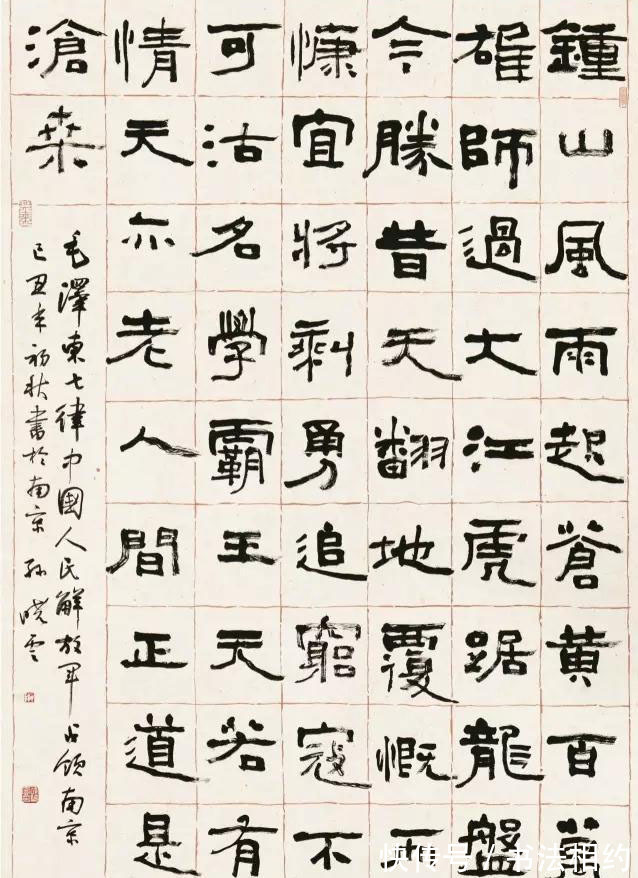 鍾山風雨起蒼黄百萬
雄師過大江虎踞龍盤
今勝昔天翻地覆慨而
慷宜將剩勇追窮寇不
可沽名學霸王天若有
情天亦老人間正道是
滄桑
毛澤東七律中國人民解放軍占領南京
己丑年初秋書於南京 孫曉雲
快传号 / 书法相约